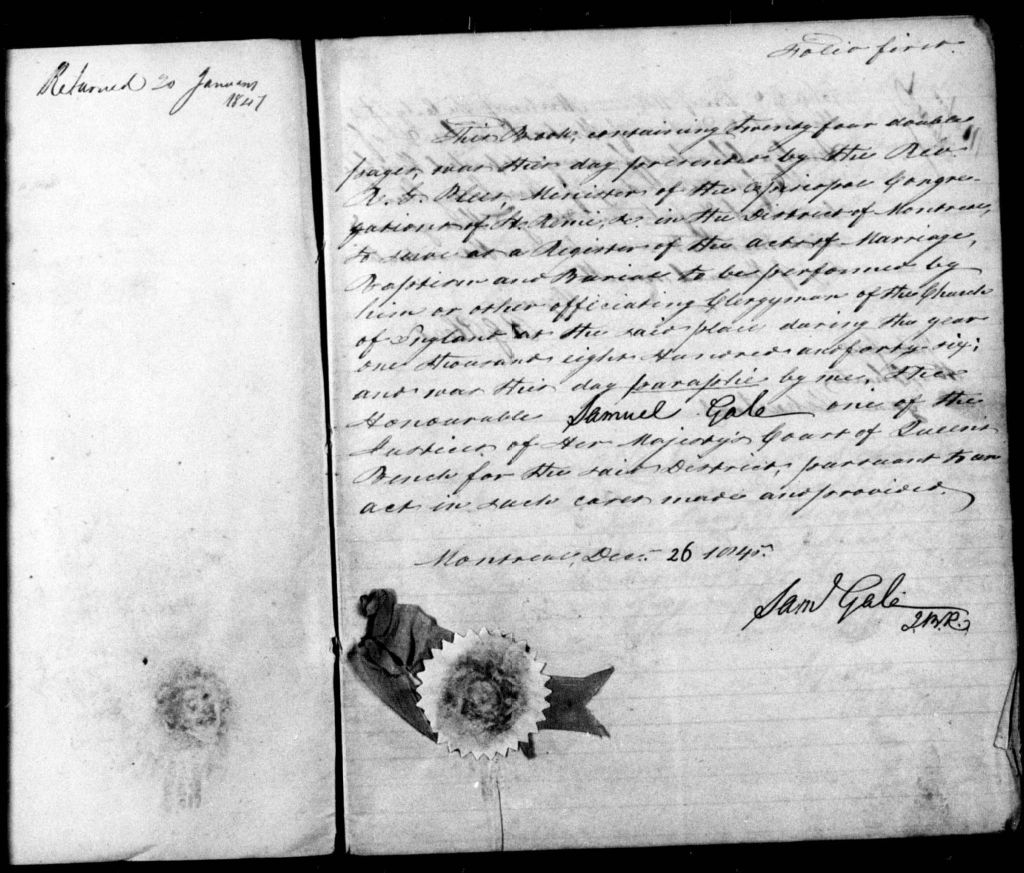 Returned 20 January
1847
Folio first.
This Book, containing twenty four double
pages, was this day presented by the Rev.
R. G. Plees, Minister of the Episcopal Congre-
gations of St. Remi, &c. in the District of Montreal,
to serve as a Register of the acts of Marriage,
Baptism and Burial to be performed by
him or other officiating Clergyman of the Church
of England at the said place during the year
one thousand eight Hundred and forty six;
and was this day paraphé by me, the
Honourable Samuel Gale one of the
Justices of Her Majesty's Court of Queen's
Bench for the said District, pursuant to an
act in such cases made and provided.
Montreal, Decr. 26 1845.
Saml Gale
J.B.R.